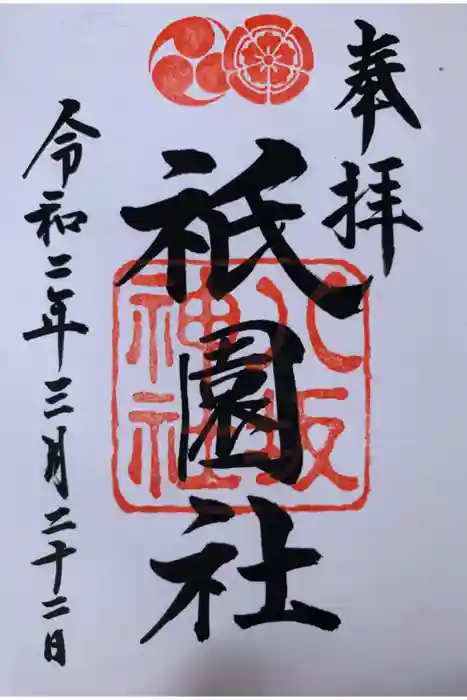 奉拝
祇園社
八坂
神社
令和二年三月二十二日